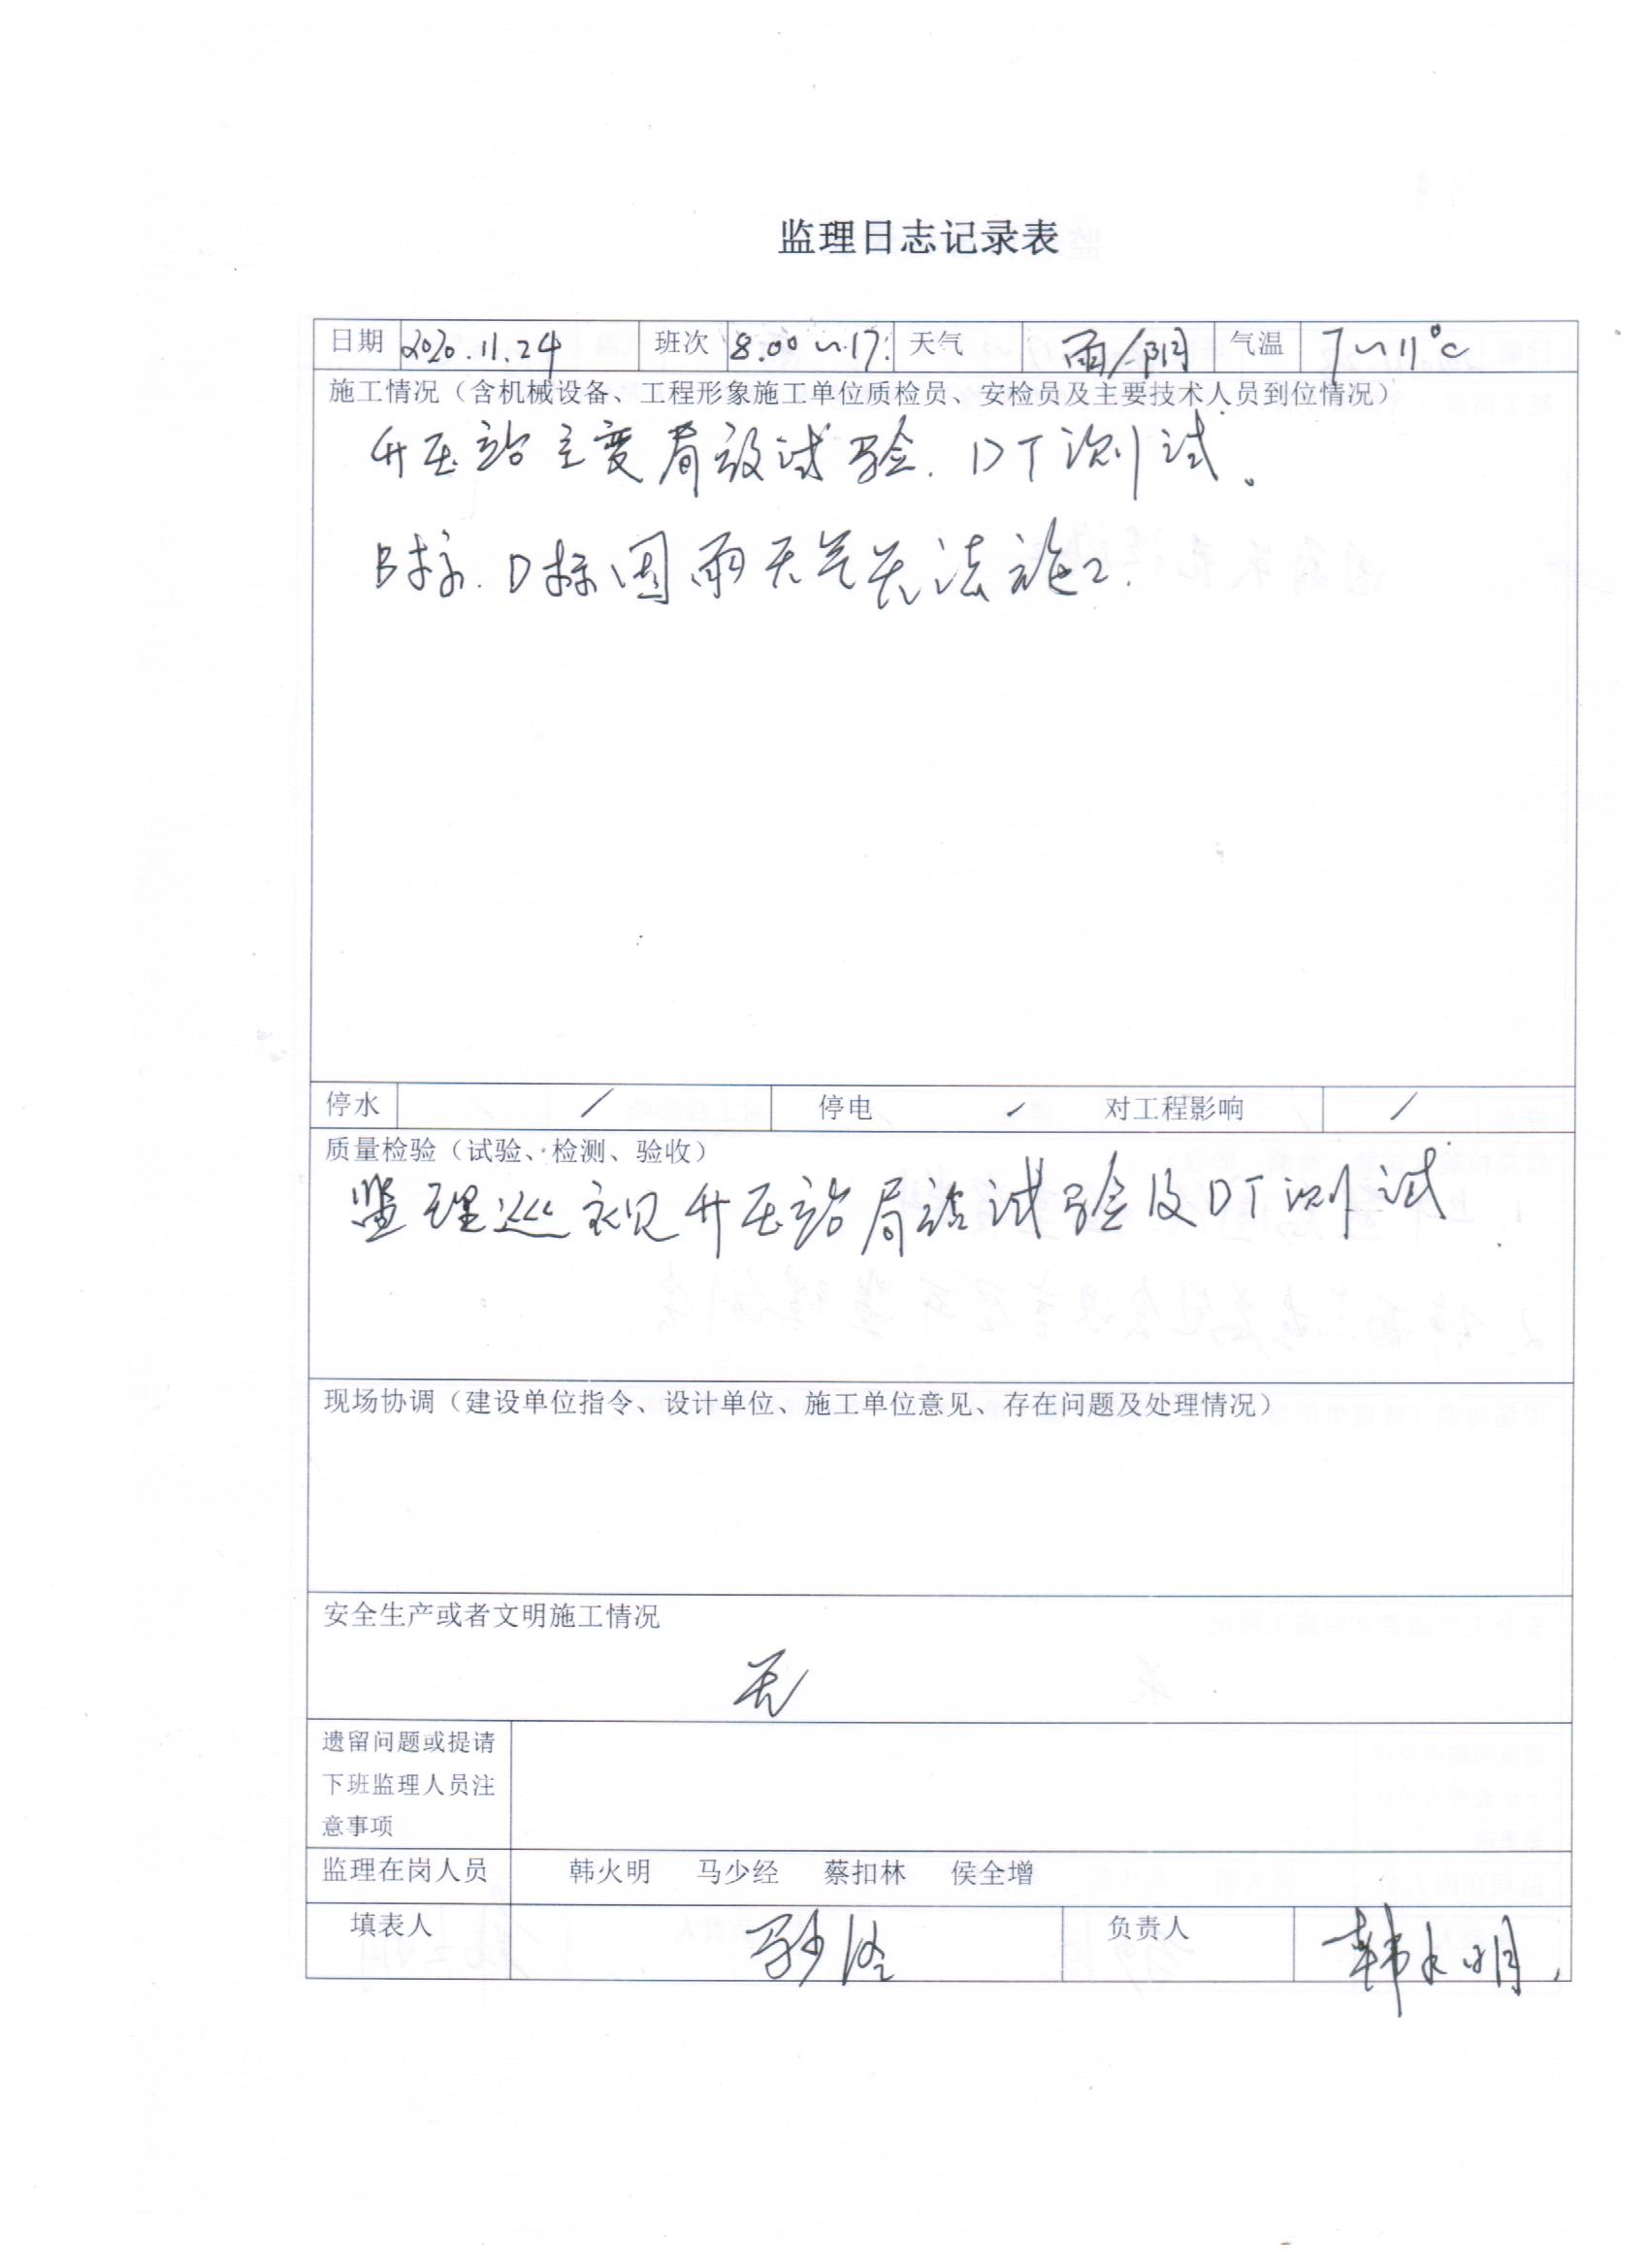 监理日志记录表
日期 2020.11.24 班次 8.00~17: 天气 雨/阴 气温 7~11℃
施工情况（含机械设备、工程形象施工单位质检员、安检员及主要技术人员到位情况）
升压站主变局放试验. DT测试。
B标. D标因雨天气无法施工.
停水 / 停电 / 对工程影响 /
质量检验（试验、检测、验收）
监理巡视升压站局放试验及DT测试.
现场协调（建设单位指令、设计单位、施工单位意见、存在问题及处理情况）
安全生产或者文明施工情况
无
遗留问题或提请
下班监理人员注
意事项
监理在岗人员 韩火明 马少经 蔡扣林 侯全增
填表人 马少经 负责人 韩火明